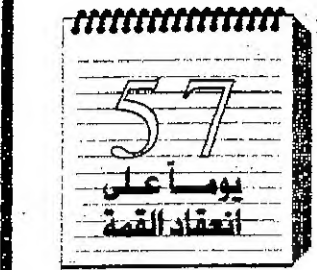 57
يوماً على
انعقاد القمة